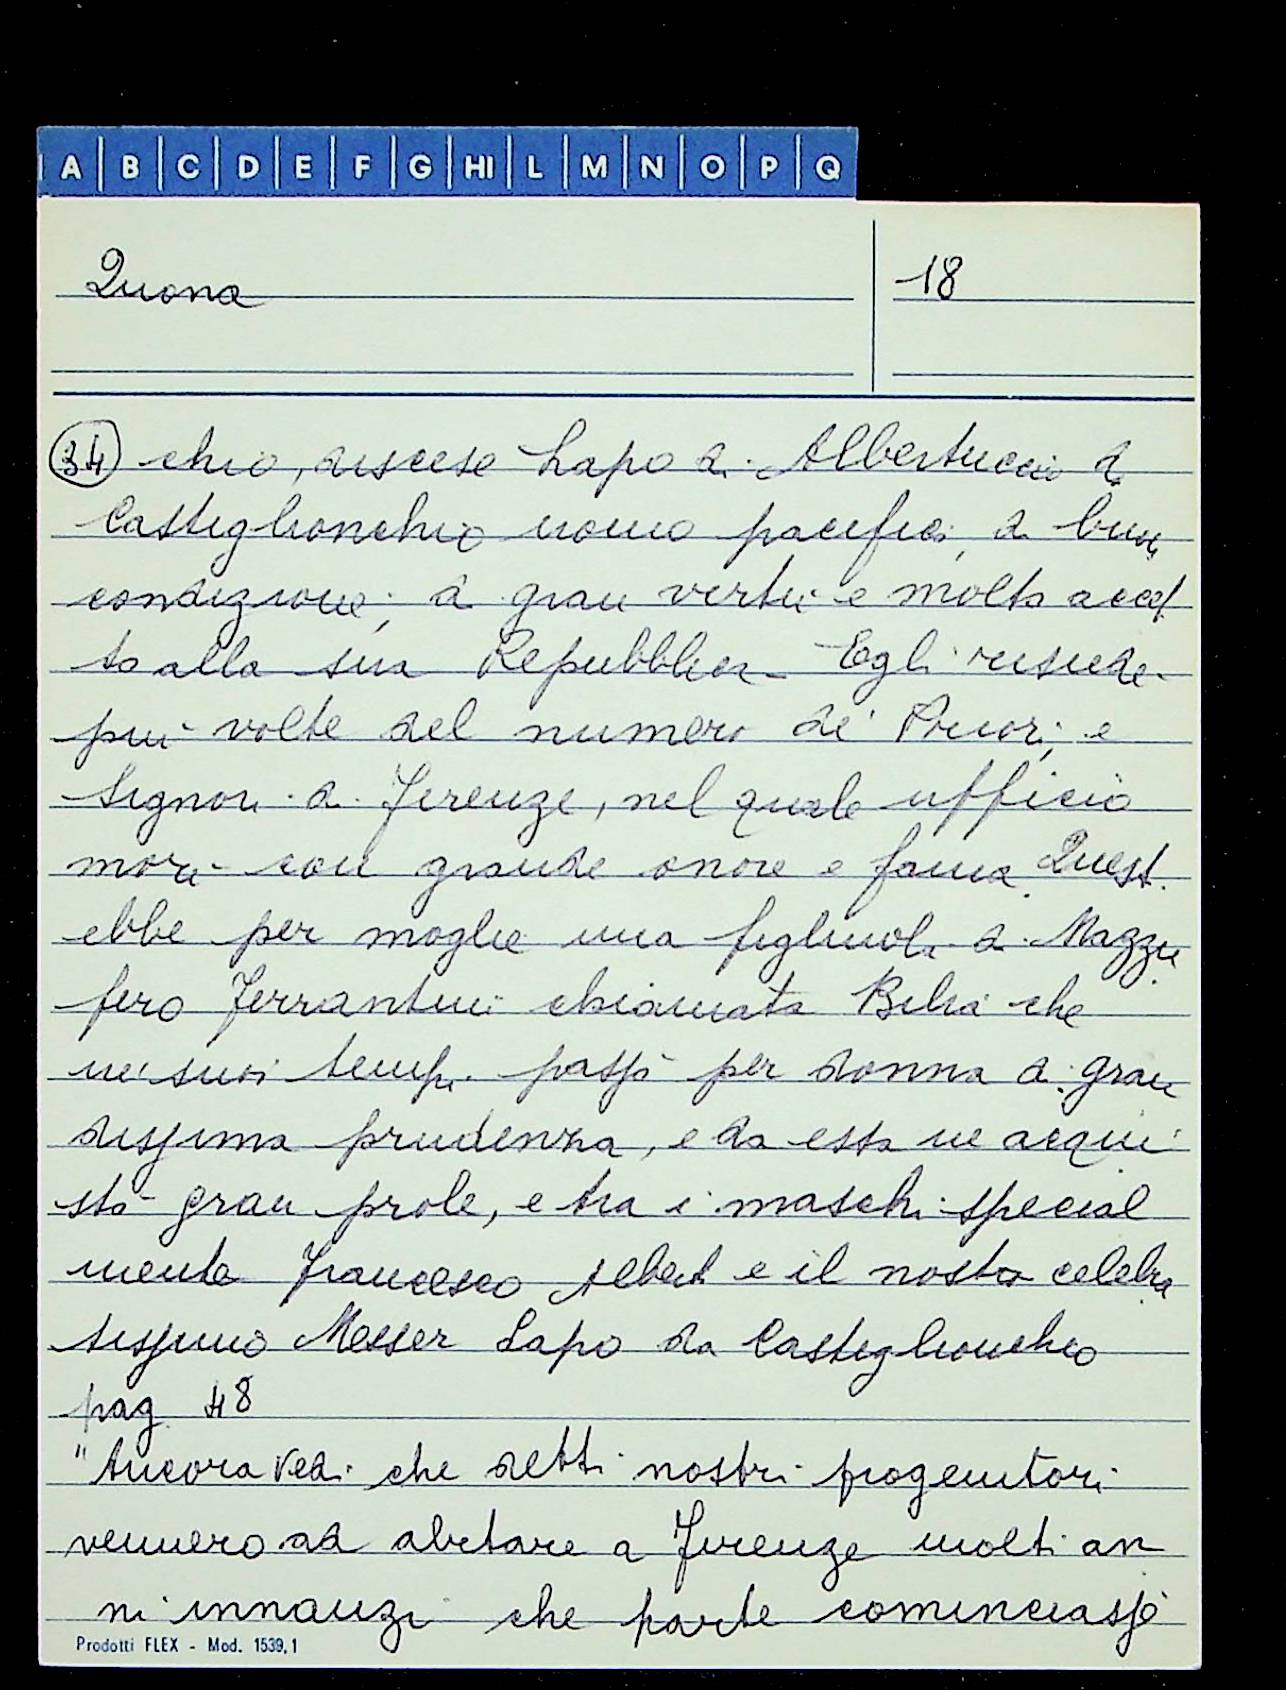 A B C D E F G HI L M N O P Q
Quona
18
34 chio, discese Lapo di Albertuccio da
Castiglionchio uomo pacifico, di buona
condizione, di gran vertù e molto accet
to alla sua Repubblica Egli risiedè
più volte del numero de' Priori, e
Signori di Firenze, nel quale ufficio
morì con grande onore e fama. Questi
ebbe per moglie una figliuola di Mazzu
fero Ferrantini chiamata Bilia che
ne' suoi tempi passò per donna di gran
dissima prudenza, e da essa ne acqui
stò gran prole, e tra i maschi special
mente Francesco Alberto e il nostro celebra
tissimo Messer Lapo da Castiglionchio
pag. 48
"Ancora vedi che detti nostri progenitori
vennero ad abitare a Firenze molti an
ni innanzi che parte cominciasse
Prodotti FLEX - Mod. 1539,1